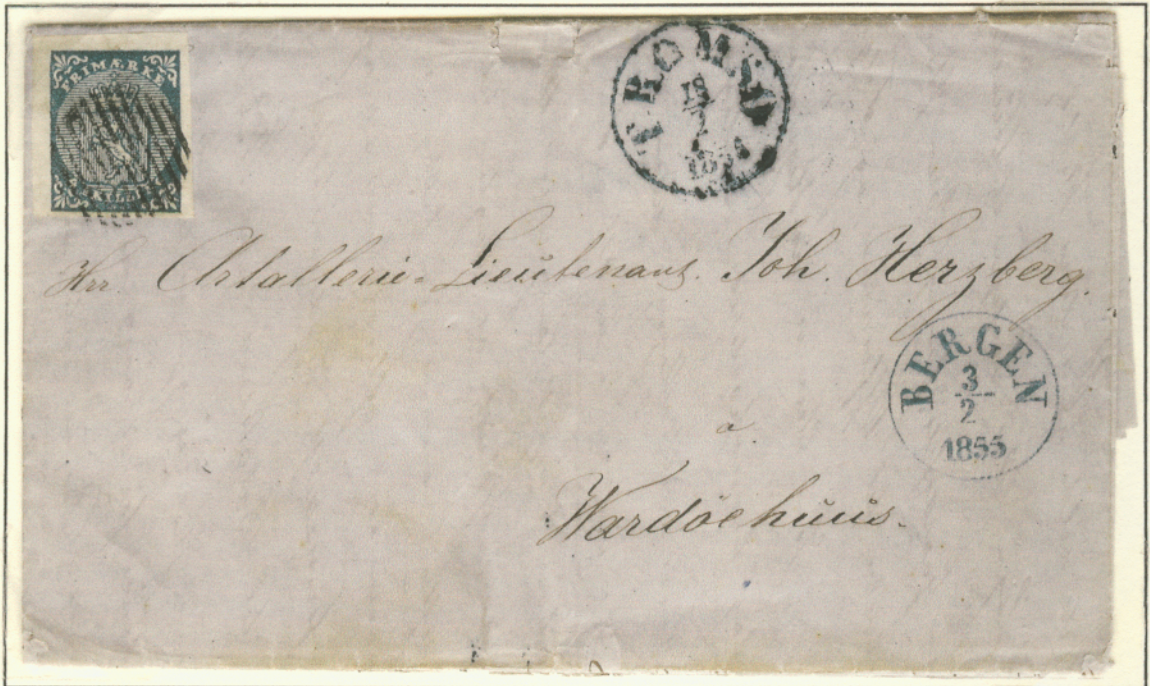 FRIMÆRKE
TROMSØ
18
2
Herr Artallerie-Lieutenant. Joh. Herzberg.
BERGEN
3
2
1855
a
Wardöehuus.